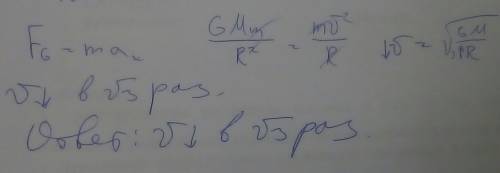 F_G = ma_n   GMm/R² = mv²/R   ↓v = √(GM/↑R)
v↓ в √3 раз.
Ответ: v↓ в √3 раз.